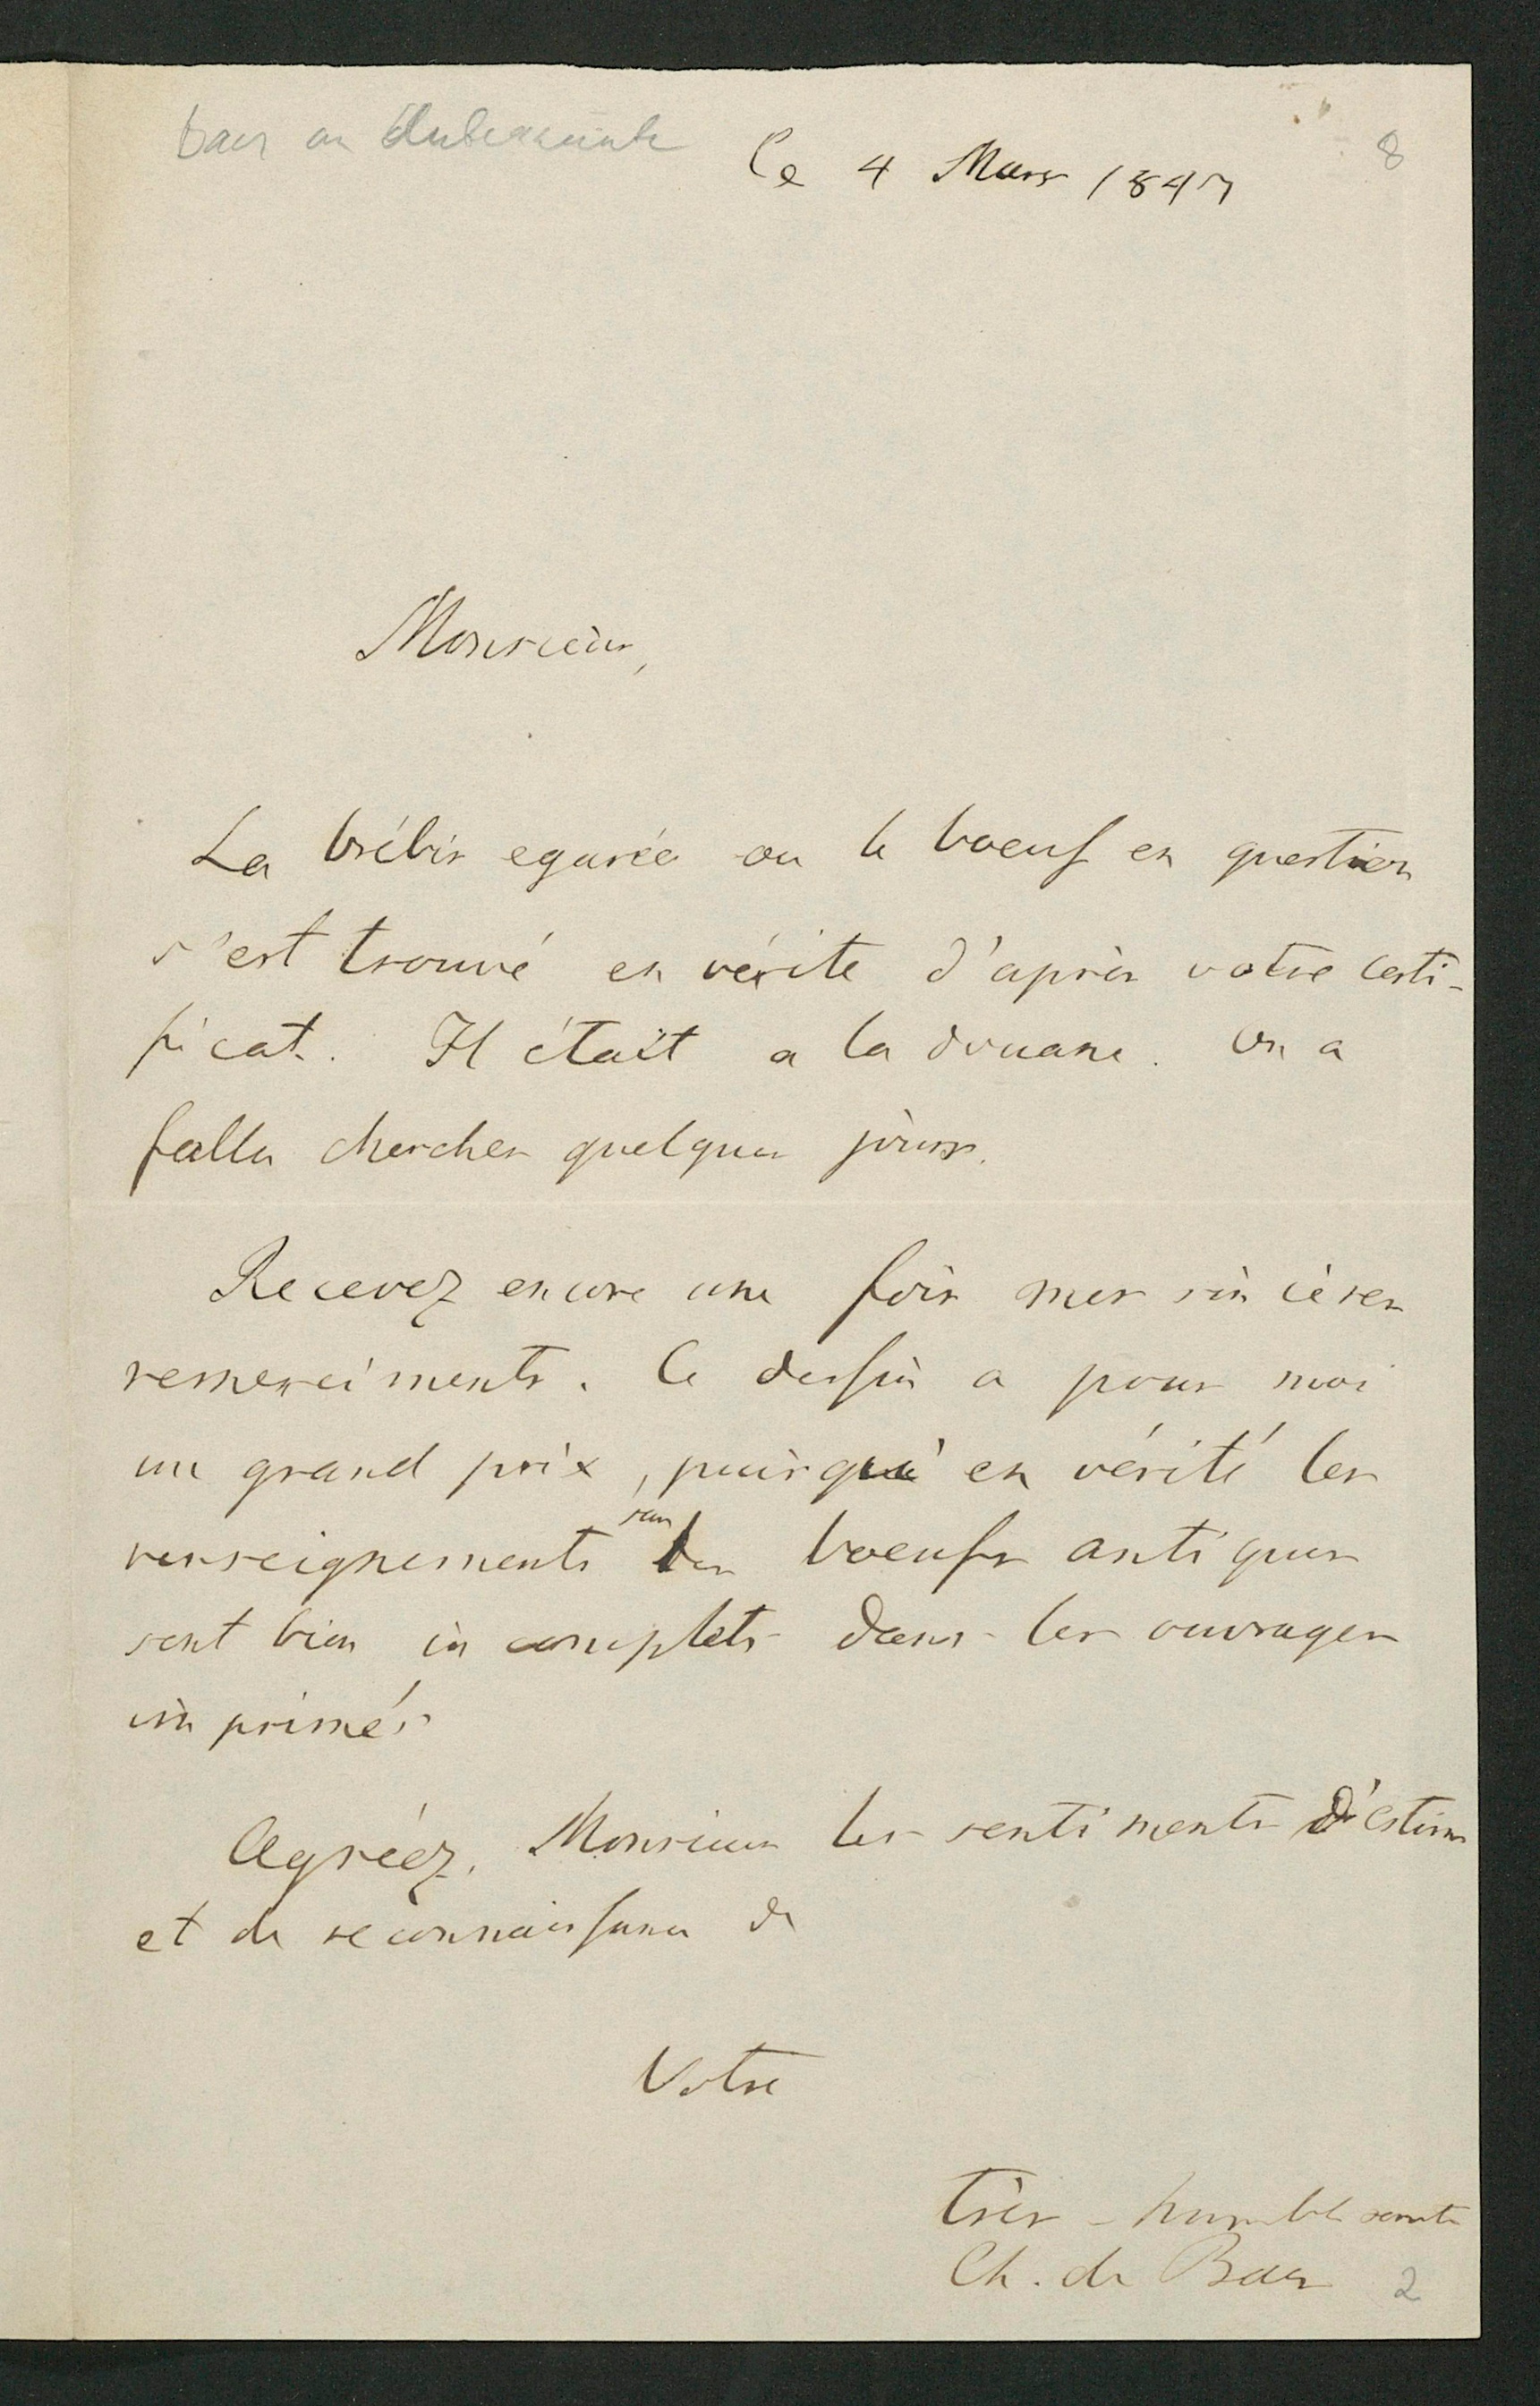 Baer an Unbekannte
8
Ce 4 Mars 1847
Monsieur,
La brébis egarée ou le boeuf en question
s'est trouvé en vérite d'après votre certi-
ficat. Il était a la douane. On a
fallu chercher quelques jours.
Recevez encore une fois mes sincères
remerciments. Ce dessin a pour moi
un grand prix, puisque en vérité les
renseignements sur les boeufs antiques
sont bien incomplets dans les ouvrages
imprimés
Agréez, Monsieur les sentiments d'estime
et de reconnaissance de
Votre
très-humble
Ch. de Baer
2